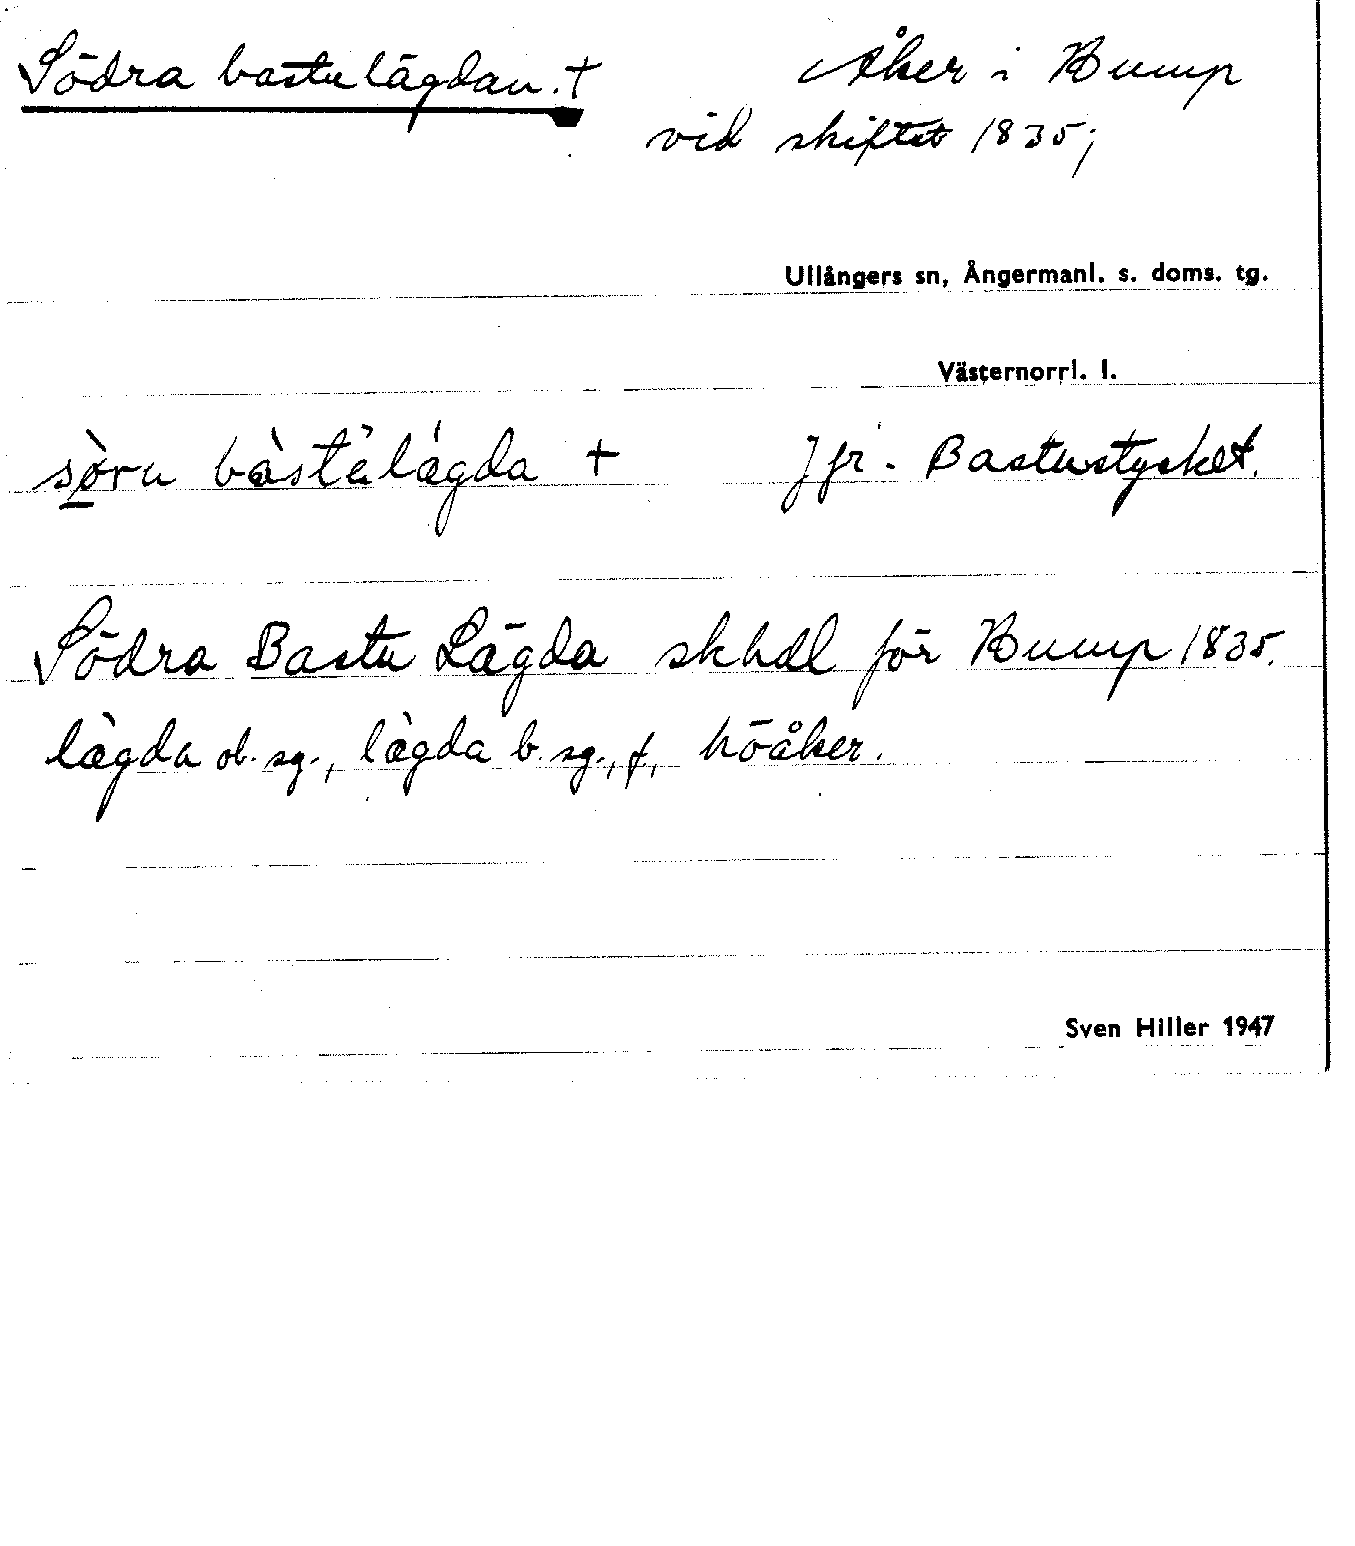 Södra bastulägdan. †
Åker i Bump
vid skiftet 1835;
Ullångers sn, Ångermanl. s. doms. tg.
Västernorrl. l.
† Jfr. Bastustycket.
Södra Bastu Lägda skhdl för Bump 1835.
lägda ob. sg., lägda b. sg., f, höåker.
Sven Hiller 1947